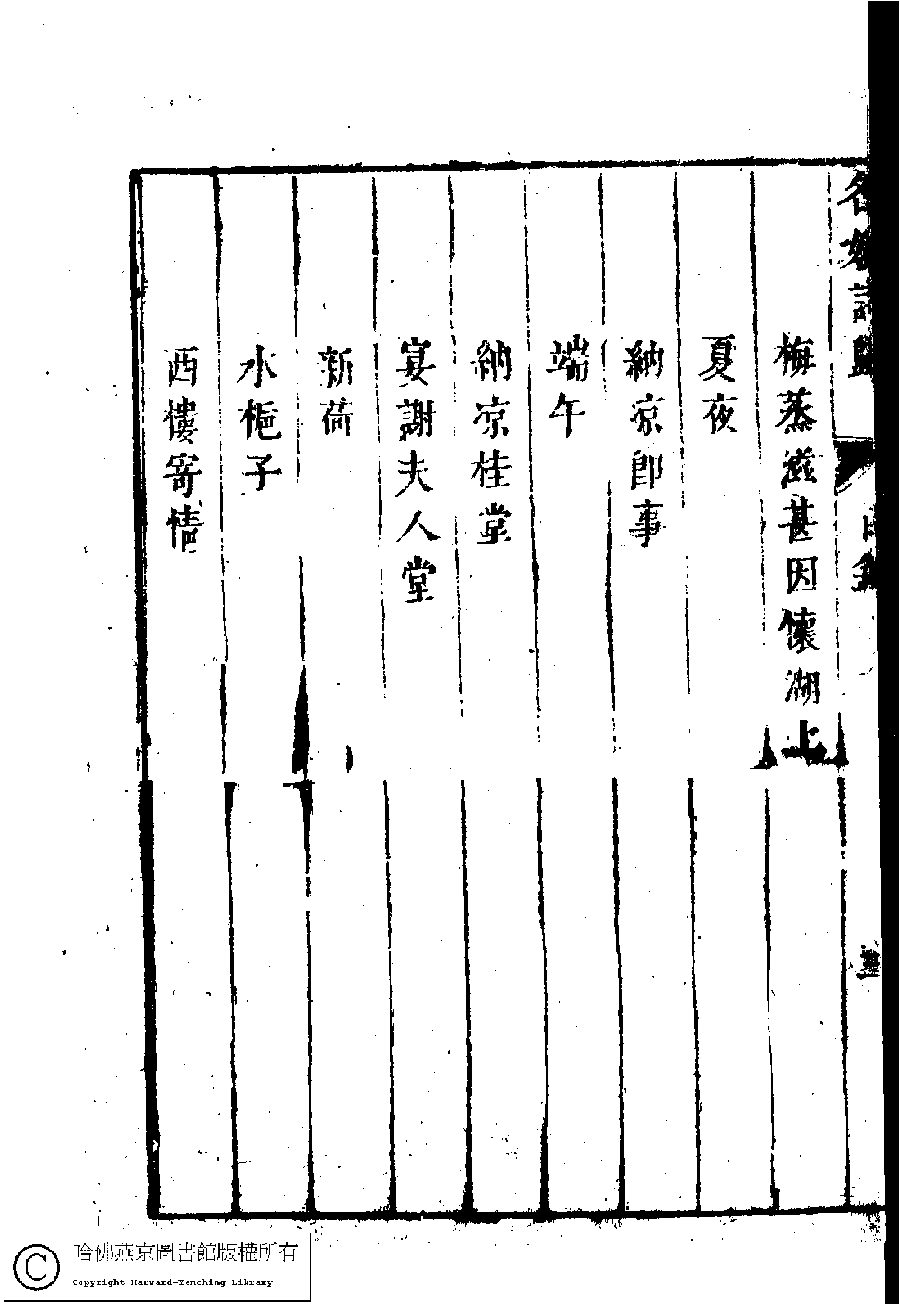 名媛詩歸
目錄
梅蒸滋甚因懷湖上
夏夜
納涼即事
端午
納凉桂堂
宴謝夫人堂
新荷
水梔子
西樓寄情
哈佛燕京圖書館版權所有
Copyright Harvard-Yenching Library